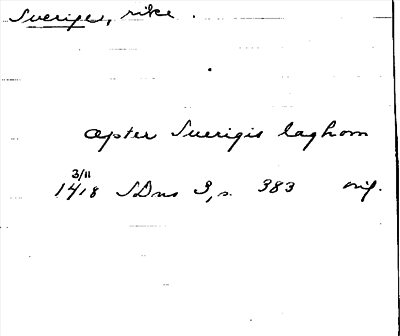 Sverige, rike.
apter Suerigis laghom
3/11
1418 SDns 3, s. 383 orig.